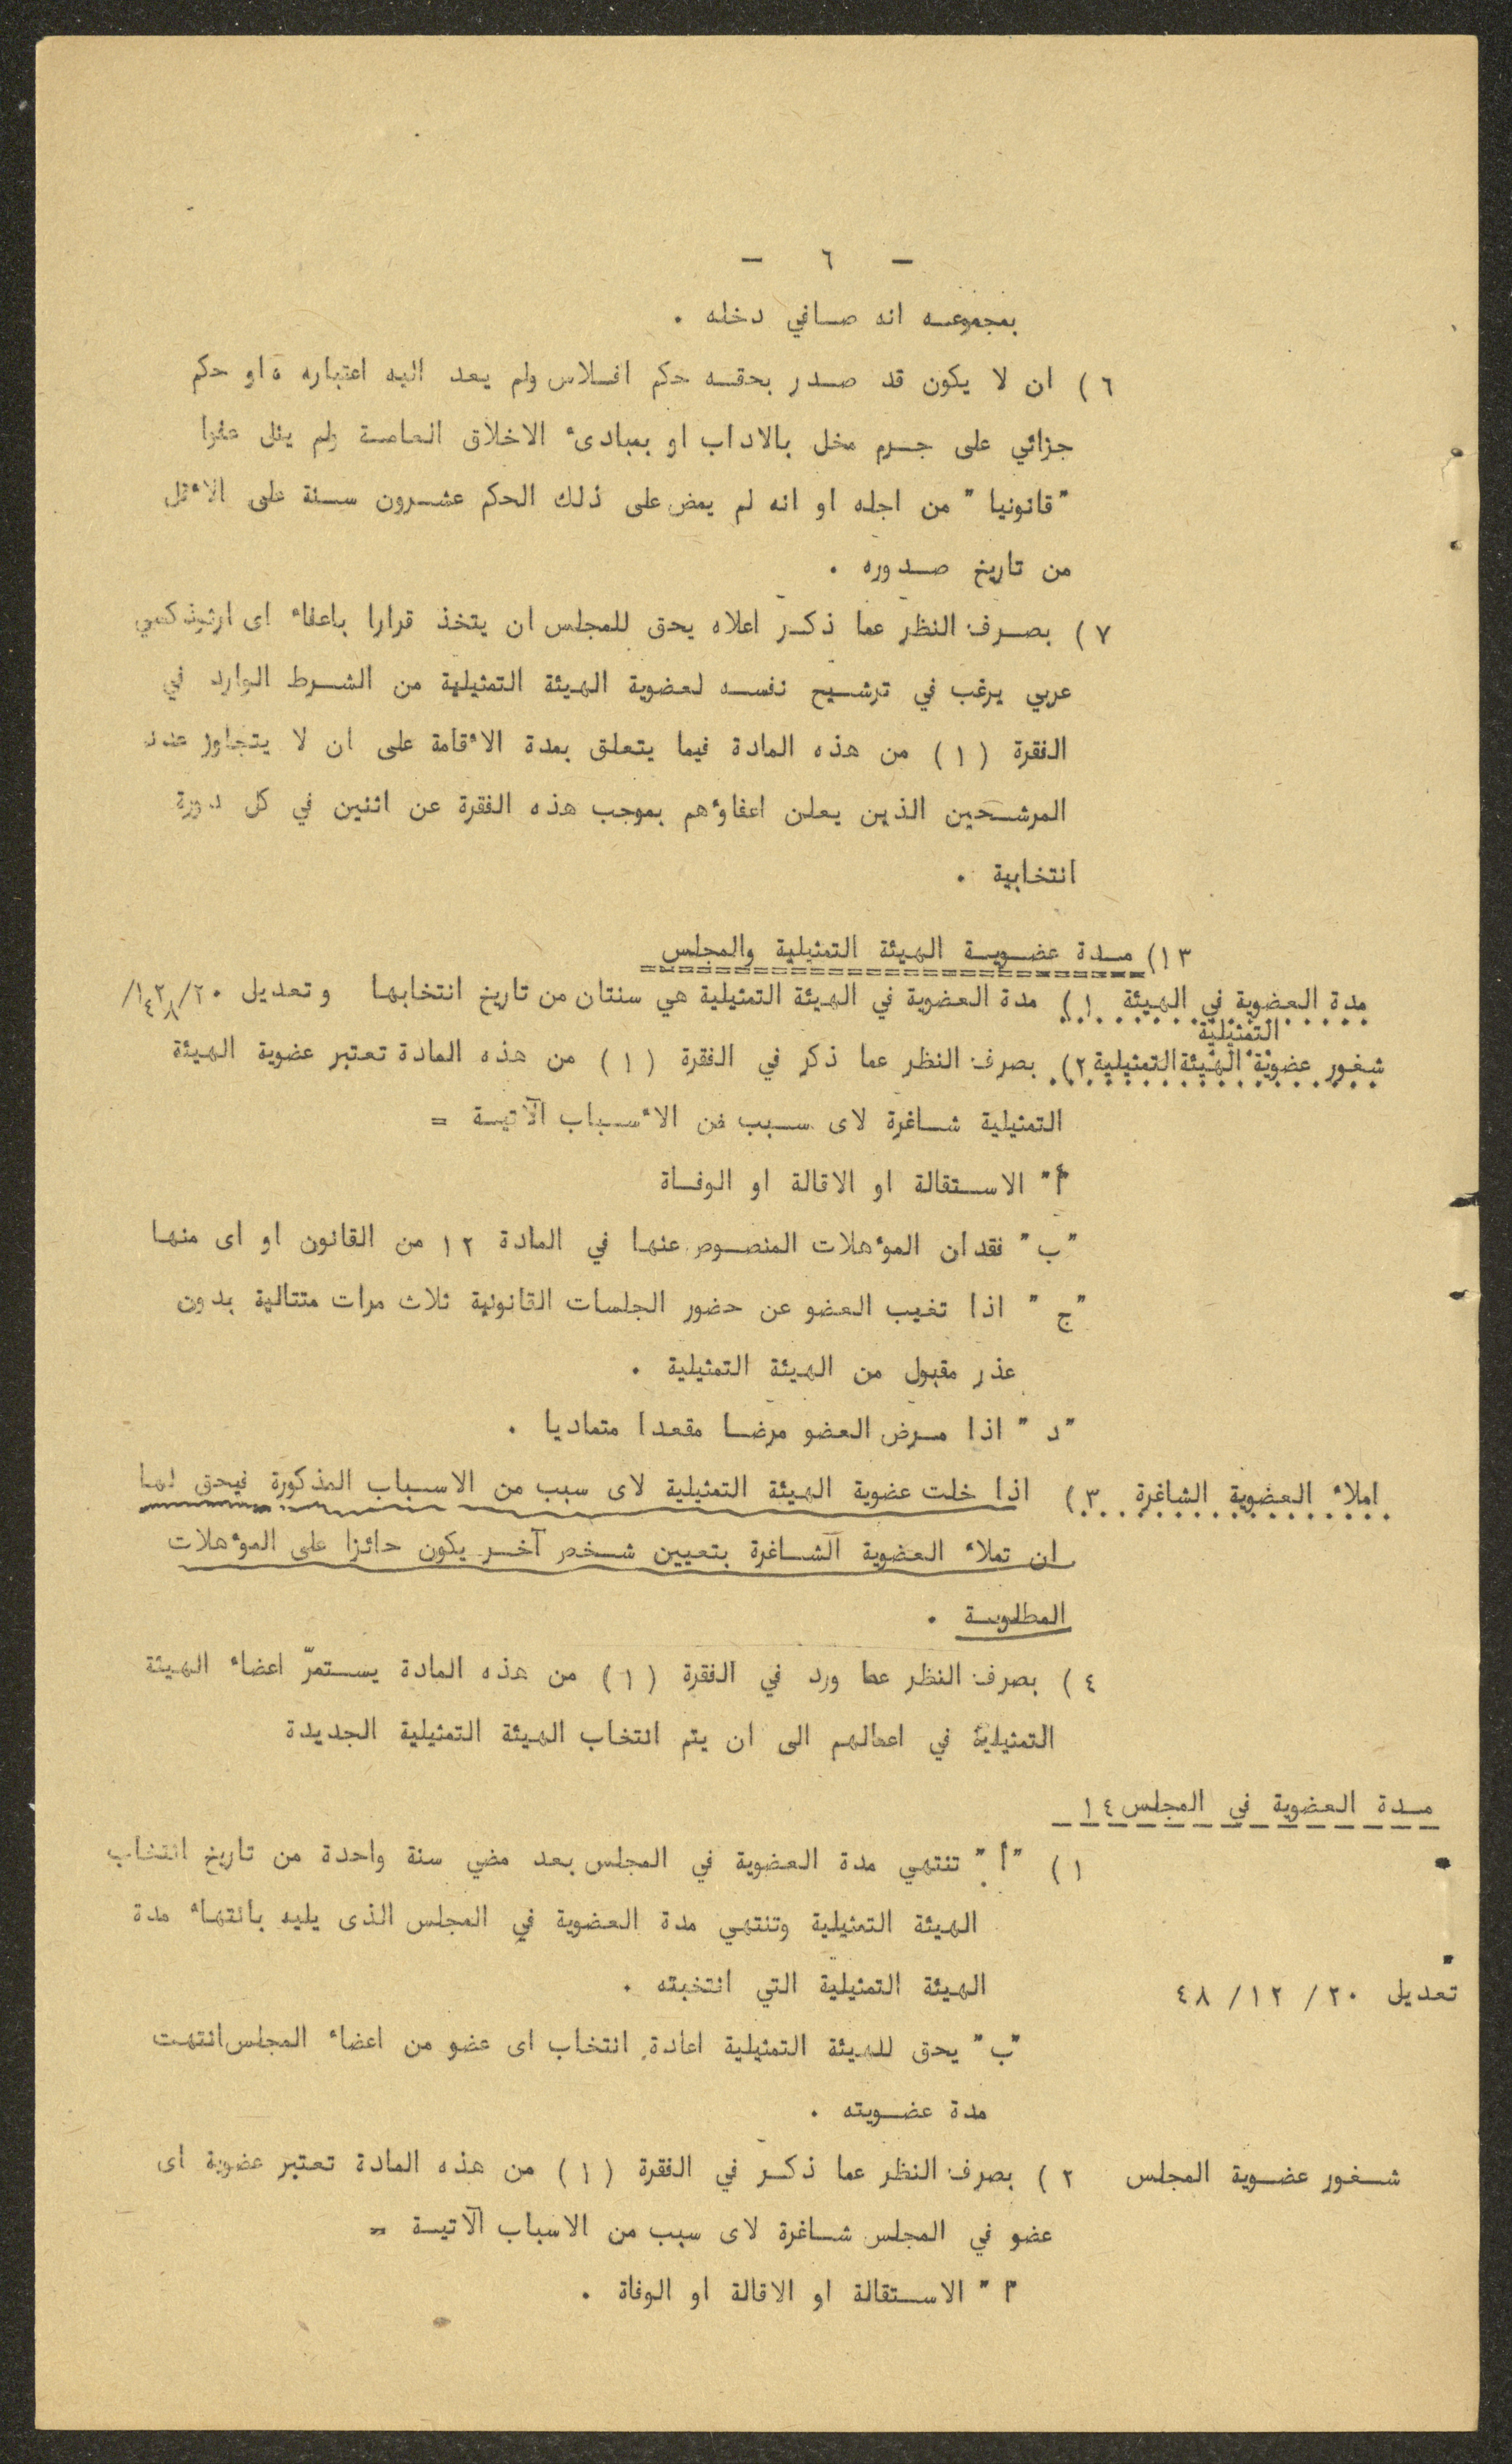 - ٦ -
بمجموعـه انه صـافي دخله .
٦ ) ان لا يكون قد صـدر بحقـه حكم افـلاس ولم يعد اليه اعتباره ة او حكم
جزائي على جـرم مخل بالاداب او بمبادىء الاخلاق العامـة ولم ينل عفوا
"قانونيا " من اجله او انه لم يمض على ذلك الحكم عشـرون سـنة على الاٴقل
من تاريخ صـدوره .
٧ ) بصـرف النظر عما ذكـر اعلاه يحق للمجلس ان يتخذ قرارا باعفاء اى ارثوذكسي
عربي يرغب في ترشـيح نفسـه لعضوية الهيئة التمثيلية من الشـرط الوارد في
الفقرة ( ١ ) من هذه المادة فيما يتعلق بمدة الاٴقامة على ان لا يتجاوز عدد
المرشـحين الذين يعلن اعفاؤهم بموجب هذه الفقرة عن اثنين في كل دورة
انتخابية .
١٣ ) مـدة عضـويـة الهيئة التمثيلية والمجلس
مدة العضوية في الهيئة ١ ) مدة العضوية في الهيئة التمثيلية هي سنتان من تاريخ انتخابهـا وتعديل ٢٠/١٢/٤٨
التمثيلية
شغور عضوية الهيئة التمثيلية ٢ ) بصرف النظر عما ذكر في الفقرة ( ١ ) من هذه المادة تعتبر عضوية الهيئة
التمثيلية شـاغرة لاى سـبب من الاٴسـباب الآتيـة =
"أ" الاسـتقالة او الاقالة او الوفـاة
"ب" فقدان المؤهلات المنصـوص عنهـا في المادة ١٢ من القانون او اى منهـا
"ج " اذا تغيب العضو عن حضور الجلسات القانونية ثلاث مرات متتالية بدون
عذر مقبول من الهيئة التمثيلية .
"د " اذا مـرض العضو مرضـا مقعدا متماديا .
املاء العضوية الشاغرة ٣ ) اذا خلت عضوية الهيئة التمثيلية لاى سبب من الاسـباب المذكورة فيحق لهـا
ان تملاء العضوية الشـاغرة بتعيين شـخص آخـر يكون حائزا على المؤهلات
المطلوبـة .
٤ ) بصرف النظر عما ورد في الفقرة ( ١ ) من هذه المادة يسـتمرّ اعضاء الهيئة
التمثيلية في اعمالهم الى ان يتم انتخاب الهيئة التمثيلية الجديدة
مـدة العضوية في المجلس ١٤
١ ) "أ " تنتهي مدة العضوية في المجلس بعد مضي سنة واحدة من تاريخ انتخاب
الهيئة التمثيلية وتنتهي مدة العضوية في المجلس الذى يليه بانتهاء مدة
الهيئة التمثيلية التي انتخبته .
تعديل ٢٠ / ١٢/ ٤٨
"ب" يحق للهيئة التمثيلية اعادة انتخاب اى عضو من اعضاء المجلس انتهت
مدة عضـويته .
شـغور عضـوية المجلس ٢ ) بصرف النظر عما ذكـر في الفقرة ( ١ ) من هذه المادة تعتبر عضوية اى
عضو في المجلس شـاغرة لاى سبب من الاسباب الآتيـة =
"ا " الاسـتقالة او الاقالة او الوفاة .